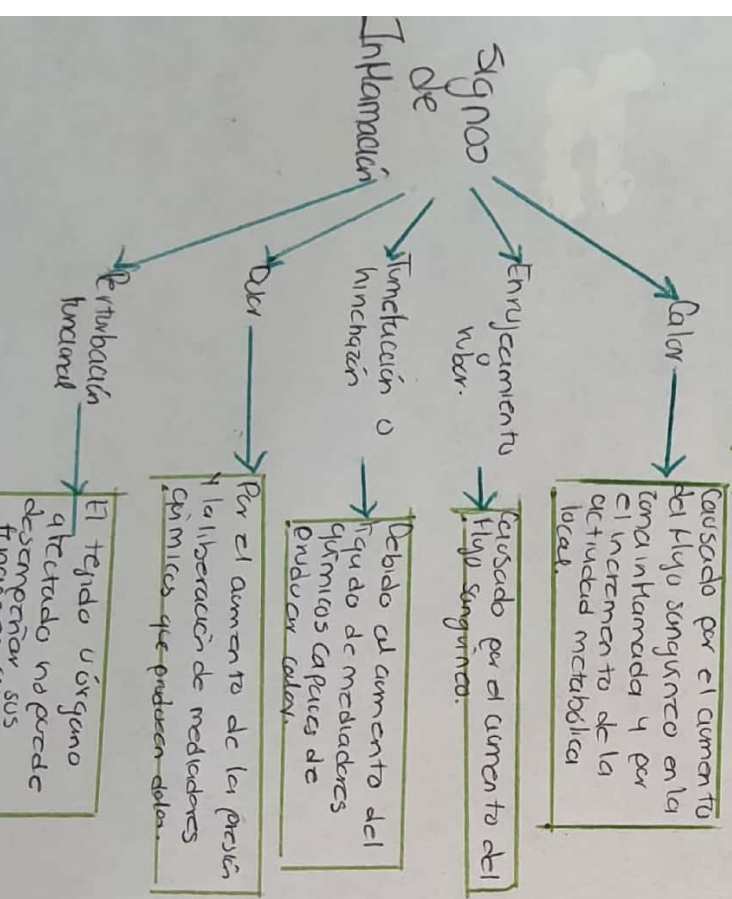 Signos
de
Inflamación
Calor
Causado por el aumento
del flujo sanguíneo en la
zona inflamada y por
el incremento de la
actividad metabólica
local.
Enrojecimiento
o
rubor.
Causado por el aumento del
flujo sanguíneo.
Tumefacción o
hinchazón
Debido al aumento del
líquido de mediadores
químicos capaces de
producir calor.
Dolor
Por el aumento de la presión
y la liberación de mediadores
químicos que producen dolor.
Perturbación
funcional
El tejido u órgano
afectado no puede
desempeñar sus